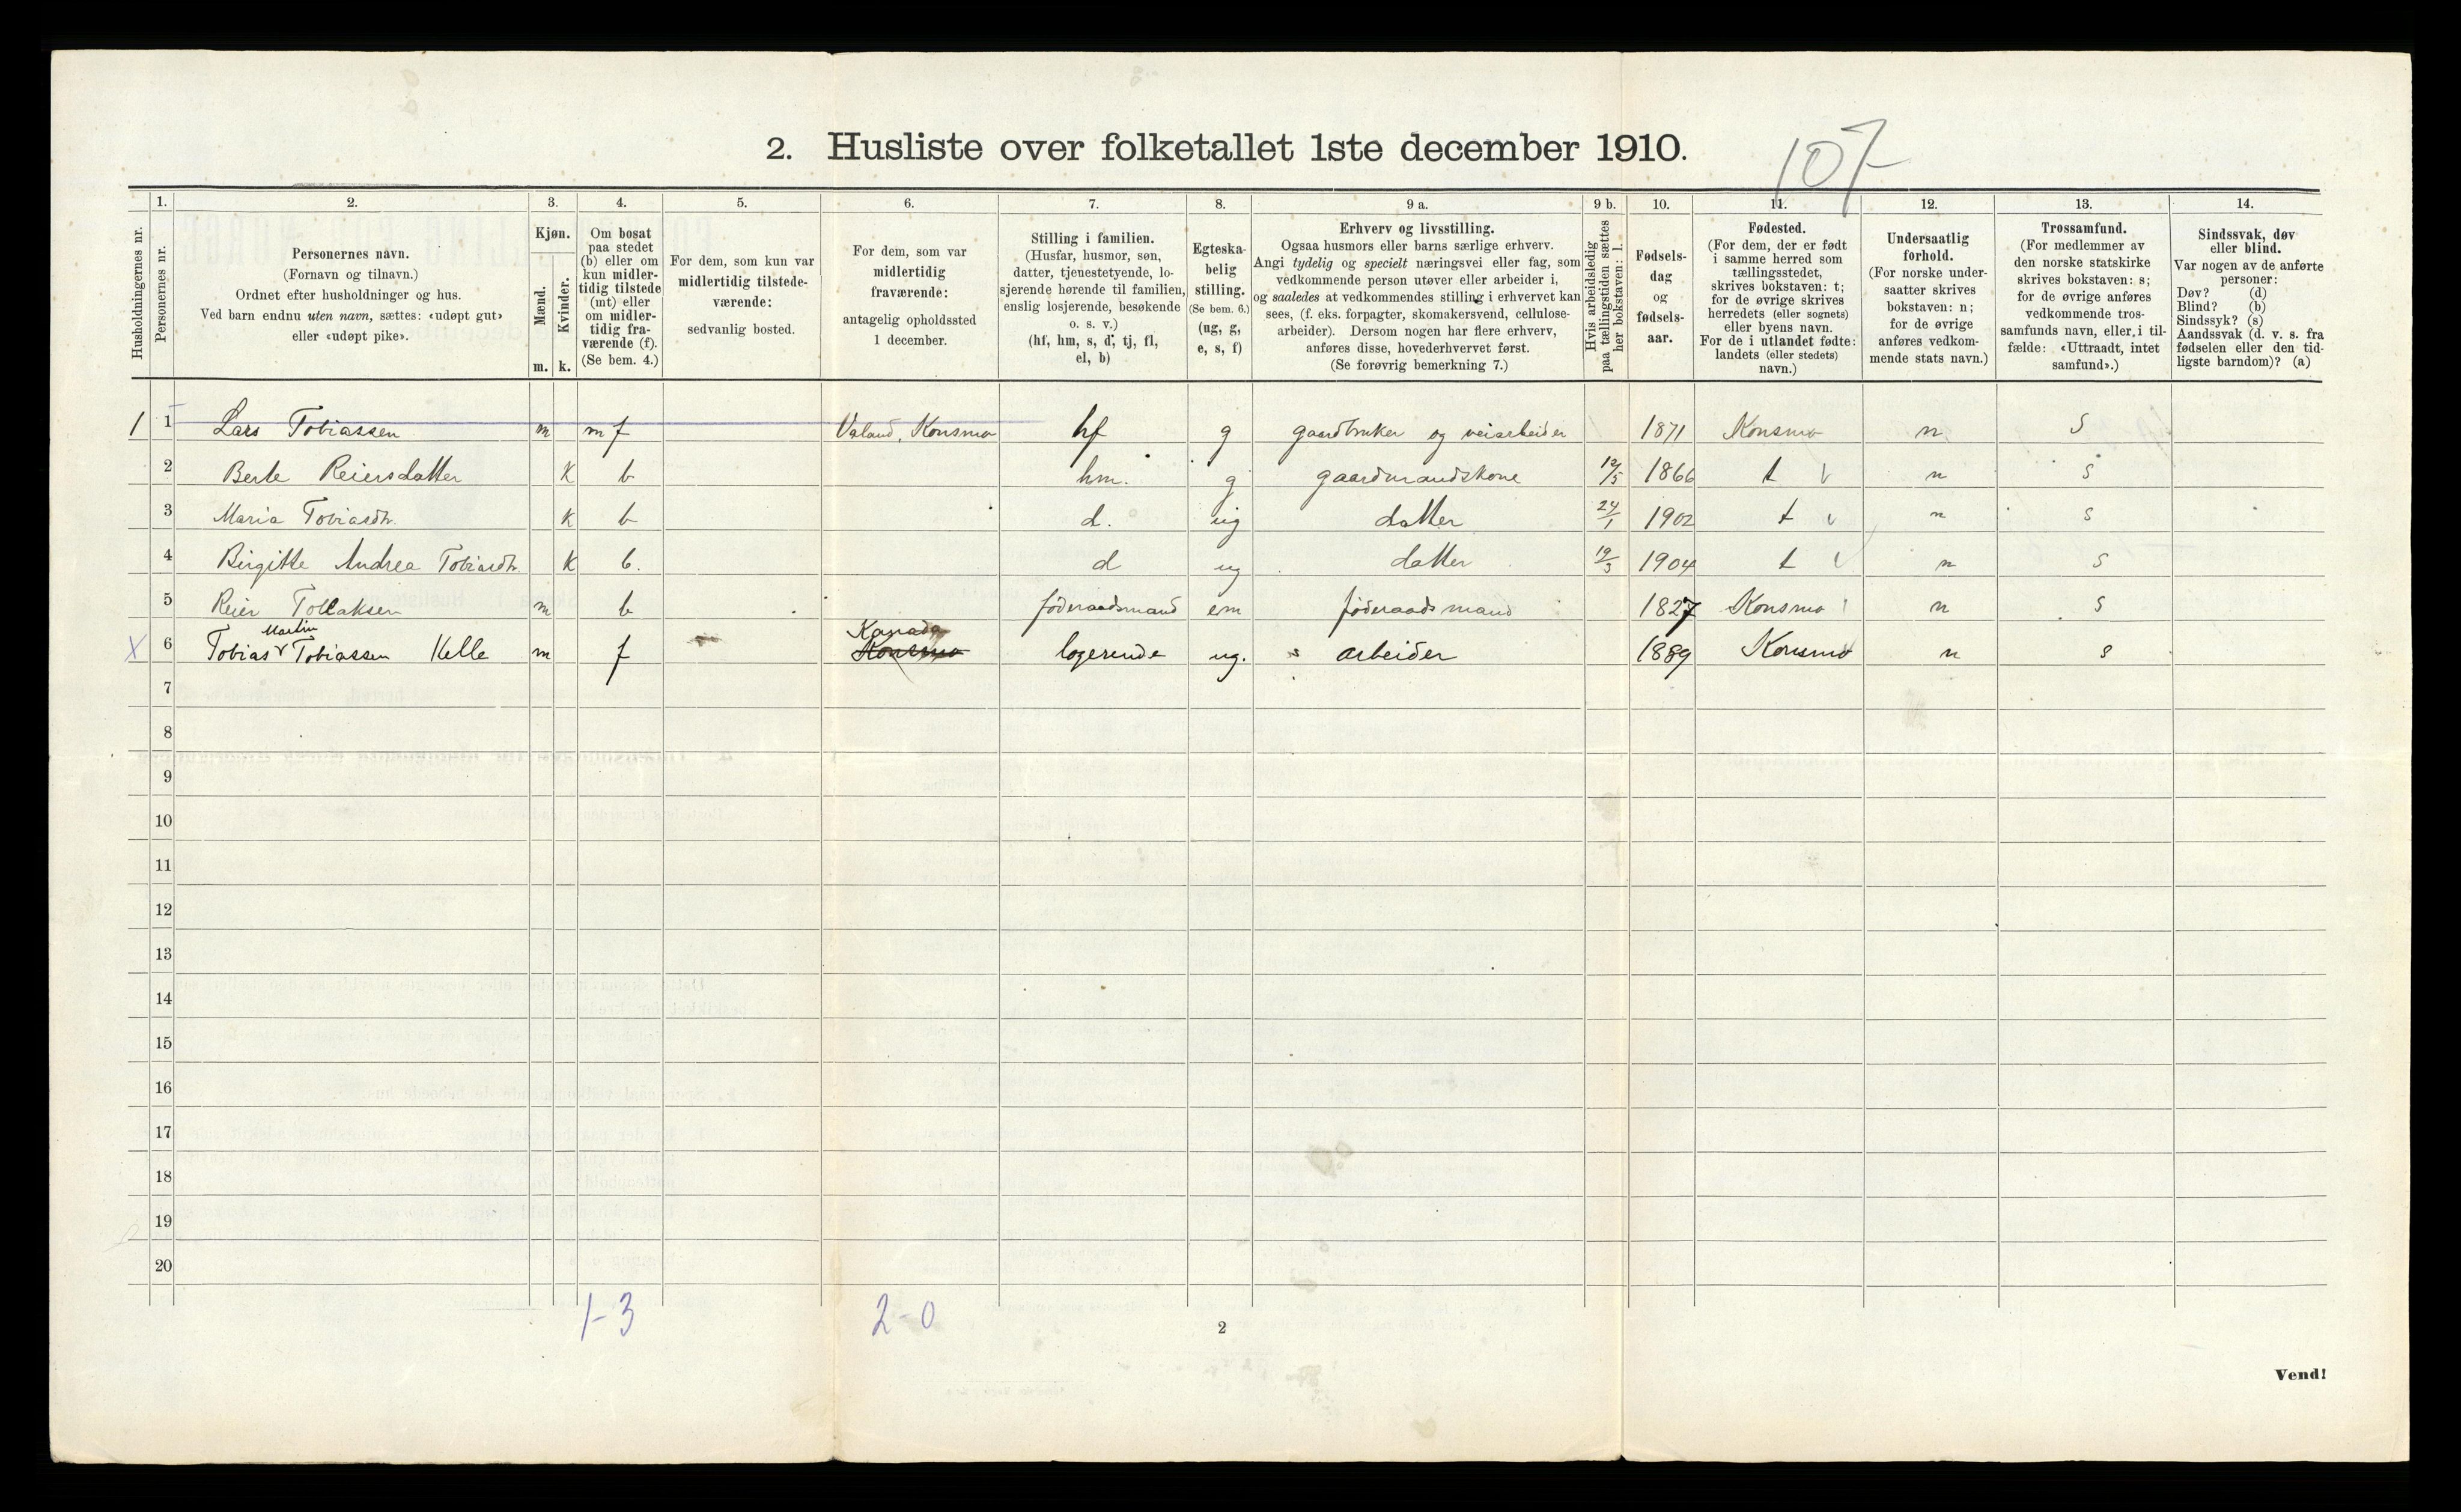 107
2. Husliste over folketallet 1ste december 1910.
Husholdningernes nr.
1.
Personernes nr.
2.
Personernes navn.
(Fornavn og tilnavn.)
Ordnet efter husholdninger og hus.
Ved barn endnu uten navn, sættes: «udøpt gut»
eller «udøpt pike».
3.
Kjøn.
Mænd.
Kvinder.
m. k.
4.
Om bosat
paa stedet
(b) eller om
kun midler-
tidig tilstede
(mt) eller
om midler-
tidig fra-
værende (f).
(Se bem. 4.)
5.
For dem, som kun var
midlertidig tilstede-
værende:
sedvanlig bosted.
6.
For dem, som var
midlertidig
fraværende:
antagelig opholdssted
1 december.
7.
Stilling i familien.
(Husfar, husmor, søn,
datter, tjenestetyende, lo-
sjerende hørende til familien,
enslig losjerende, besøkende
o. s. v.)
(hf, hm, s, d, tj, fl,
el, b)
8.
Egteska-
belig
stilling.
(Se bem. 6.)
(ug, g,
e, s, f)
9 a.
Erhverv og livsstilling.
Ogsaa husmors eller barns særlige erhverv.
Angi tydelig og specielt næringsvei eller fag, som
vedkommende person utøver eller arbeider i,
og saaledes at vedkommendes stilling i erhvervet kan
sees, (f. eks. forpagter, skomakersvend, cellulose-
arbeider). Dersom nogen har flere erhverv,
anføres disse, hovederhvervet først.
(Se forøvrig bemerkning 7.)
9 b.
Hvis arbeidsledig
paa tællingstiden sættes
her bokstaven: l.
10.
Fødsels-
dag
og
fødsels-
aar.
11.
Fødested.
(For dem, der er født
i samme herred som
tællingsstedet,
skrives bokstaven: t;
for de øvrige skrives
herredets (eller sognets)
eller byens navn.
For de i utlandet fødte:
landets (eller stedets)
navn.)
12.
Undersaatlig
forhold.
(For norske under-
saatter skrives
bokstaven: n;
for de øvrige
anføres vedkom-
mende stats navn.)
13.
Trossamfund.
(For medlemmer av
den norske statskirke
skrives bokstaven: s;
for de øvrige anføres
vedkommende tros-
samfunds navn, eller, i til-
fælde: «Uttraadt, intet
samfund».)
14.
Sindssvak, døv
eller blind.
Var nogen av de anførte
personer:
Døv? (d)
Blind? (b)
Sindssyk? (s)
Aandssvak (d. v. s. fra
fødselen eller den tid-
ligste barndom)? (a)
1 1 Lars Tobiassen m mf Valand, Konsmo hf g gaardbruker og veiarbeider 1871 Konsmo n S
2 Berte Reiersdatter K b hm. g gaardmandskone 12/5 1866 t n s
3 Maria Tobiasdtr. K b d. ug datter 24/1 1902 t n s
4 Birgitte Andrea Tobiasdtr. K b. d ug datter 19/3 1904 t n s
5 Reier Tollaksen m b føderaadsmand em føderaadsmand 1827 Konsmo n s
Martin Kanada
X 6 Tobias Tobiassen Kelle m f Konsmo logerende ug. s arbeider 1889 Konsmo n s
7
8
9
10
11
12
13
14
15
16
17
18
19
20
1-3 2-0
2
Vend!